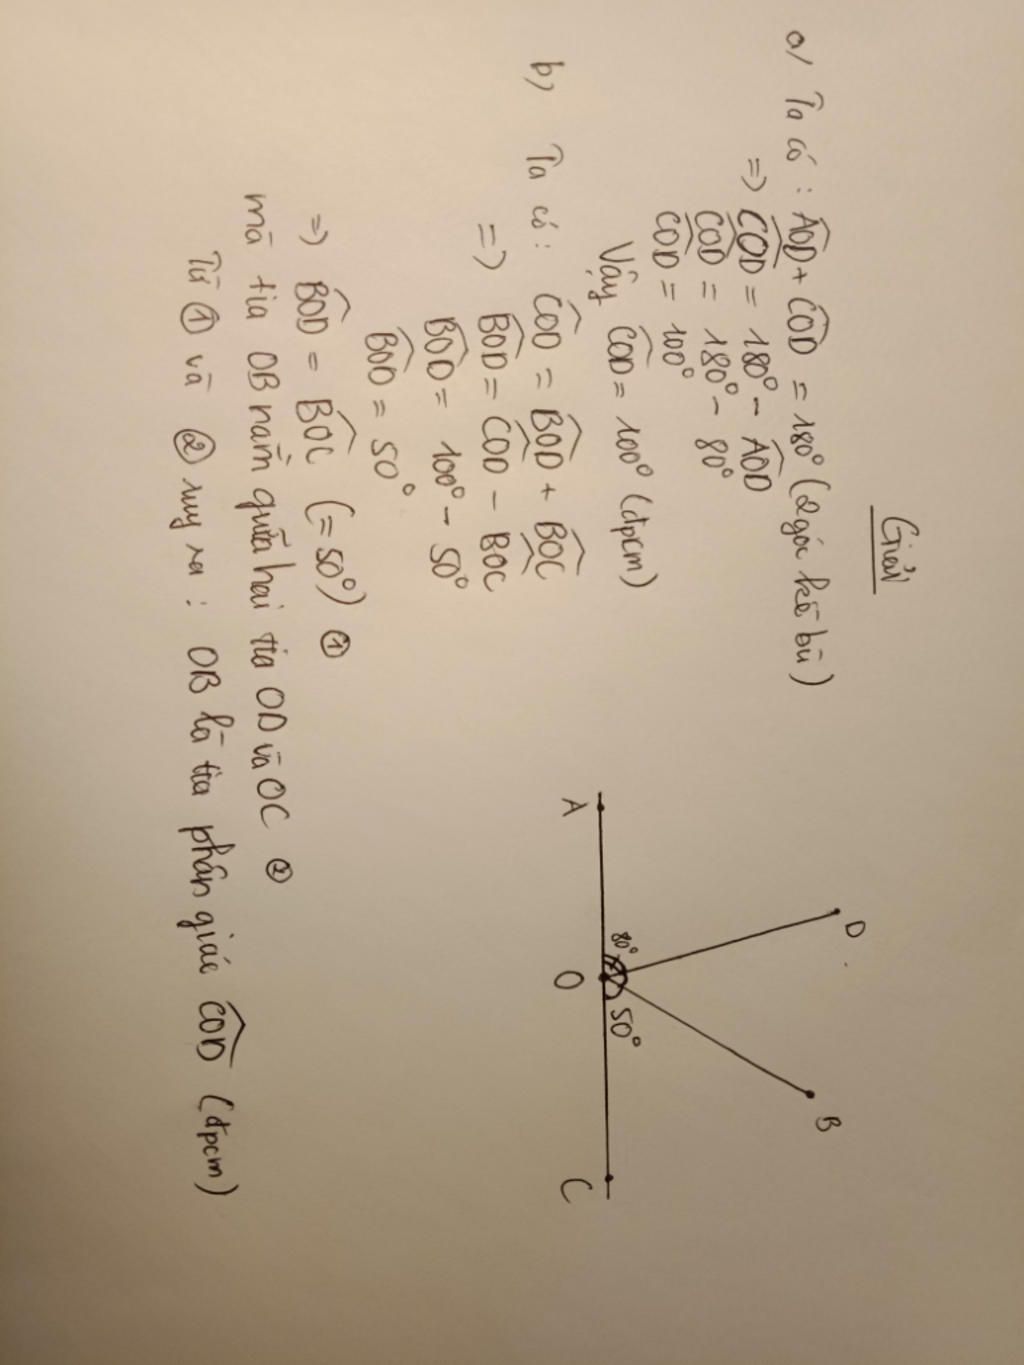 Giải
a/ Ta có : AOD + COD = 180° (2 góc kề bù)
=> COD = 180° - AOD
COD = 180° - 80°
COD = 100°
Vậy COD = 100° (đpcm)
b) Ta có : COD = BOD + BOC
=> BOD = COD - BOC
BOD = 100° - 50°
BOD = 50°
=> BOD = BOC (= 50°) ①
mà tia OB nằm giữa hai tia OD và OC ②
Từ ① và ② suy ra : OB là tia phân giác COD (đpcm)
D
B
80°
50°
A
O
C